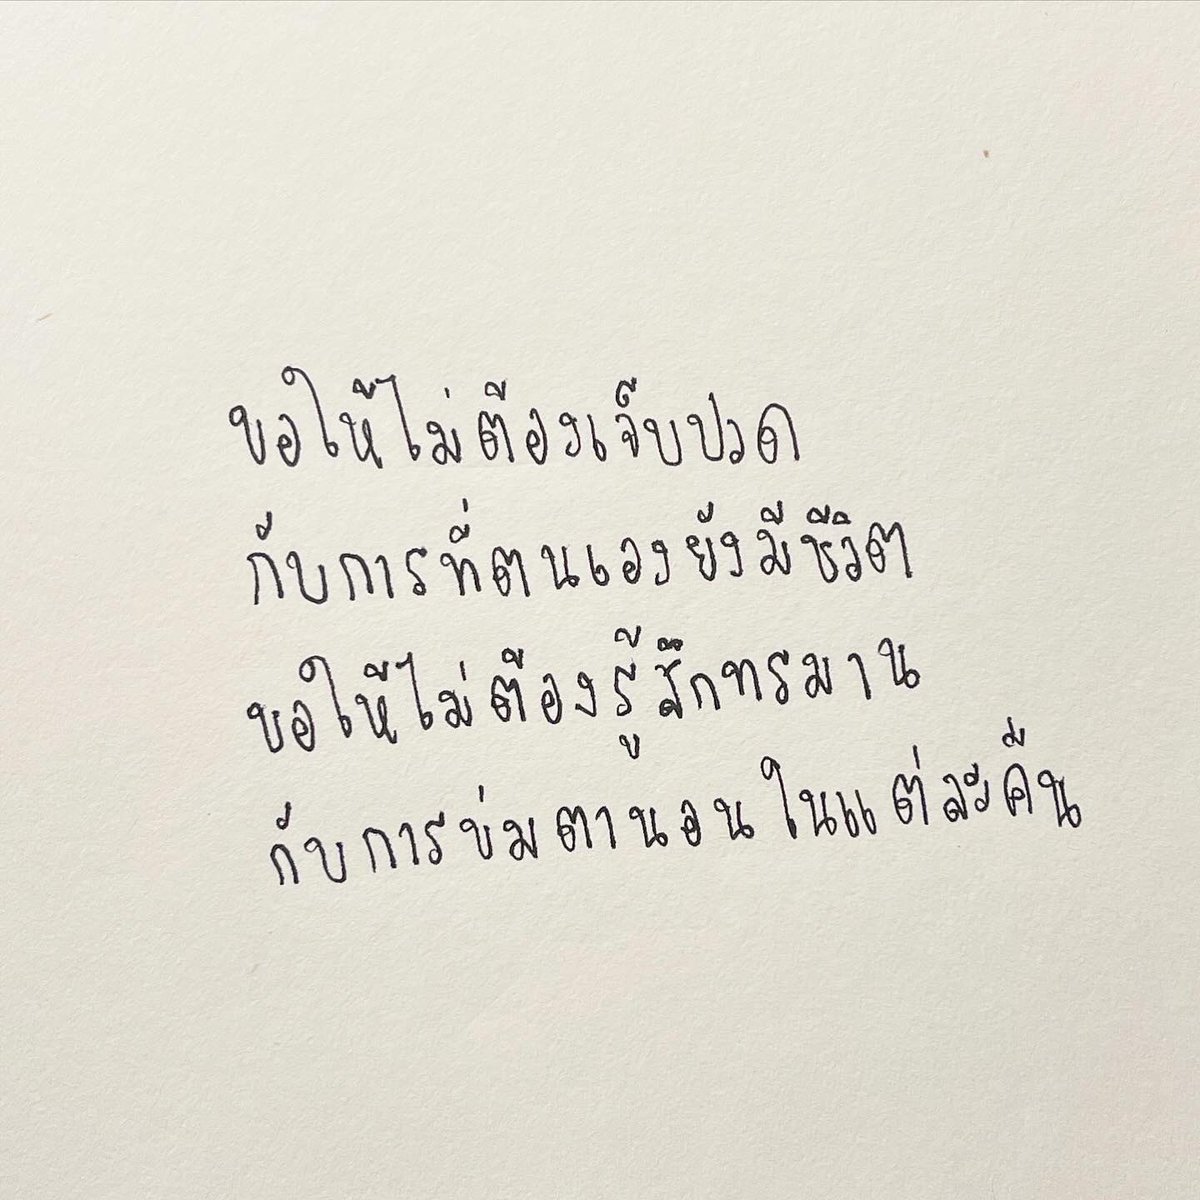 ขอให้ไม่ต้องเจ็บปวด
กับการที่ตนเองยังมีชีวิต
ขอให้ไม่ต้องรู้สึกทรมาน
กับการข่มตานอนในแต่ละคืน